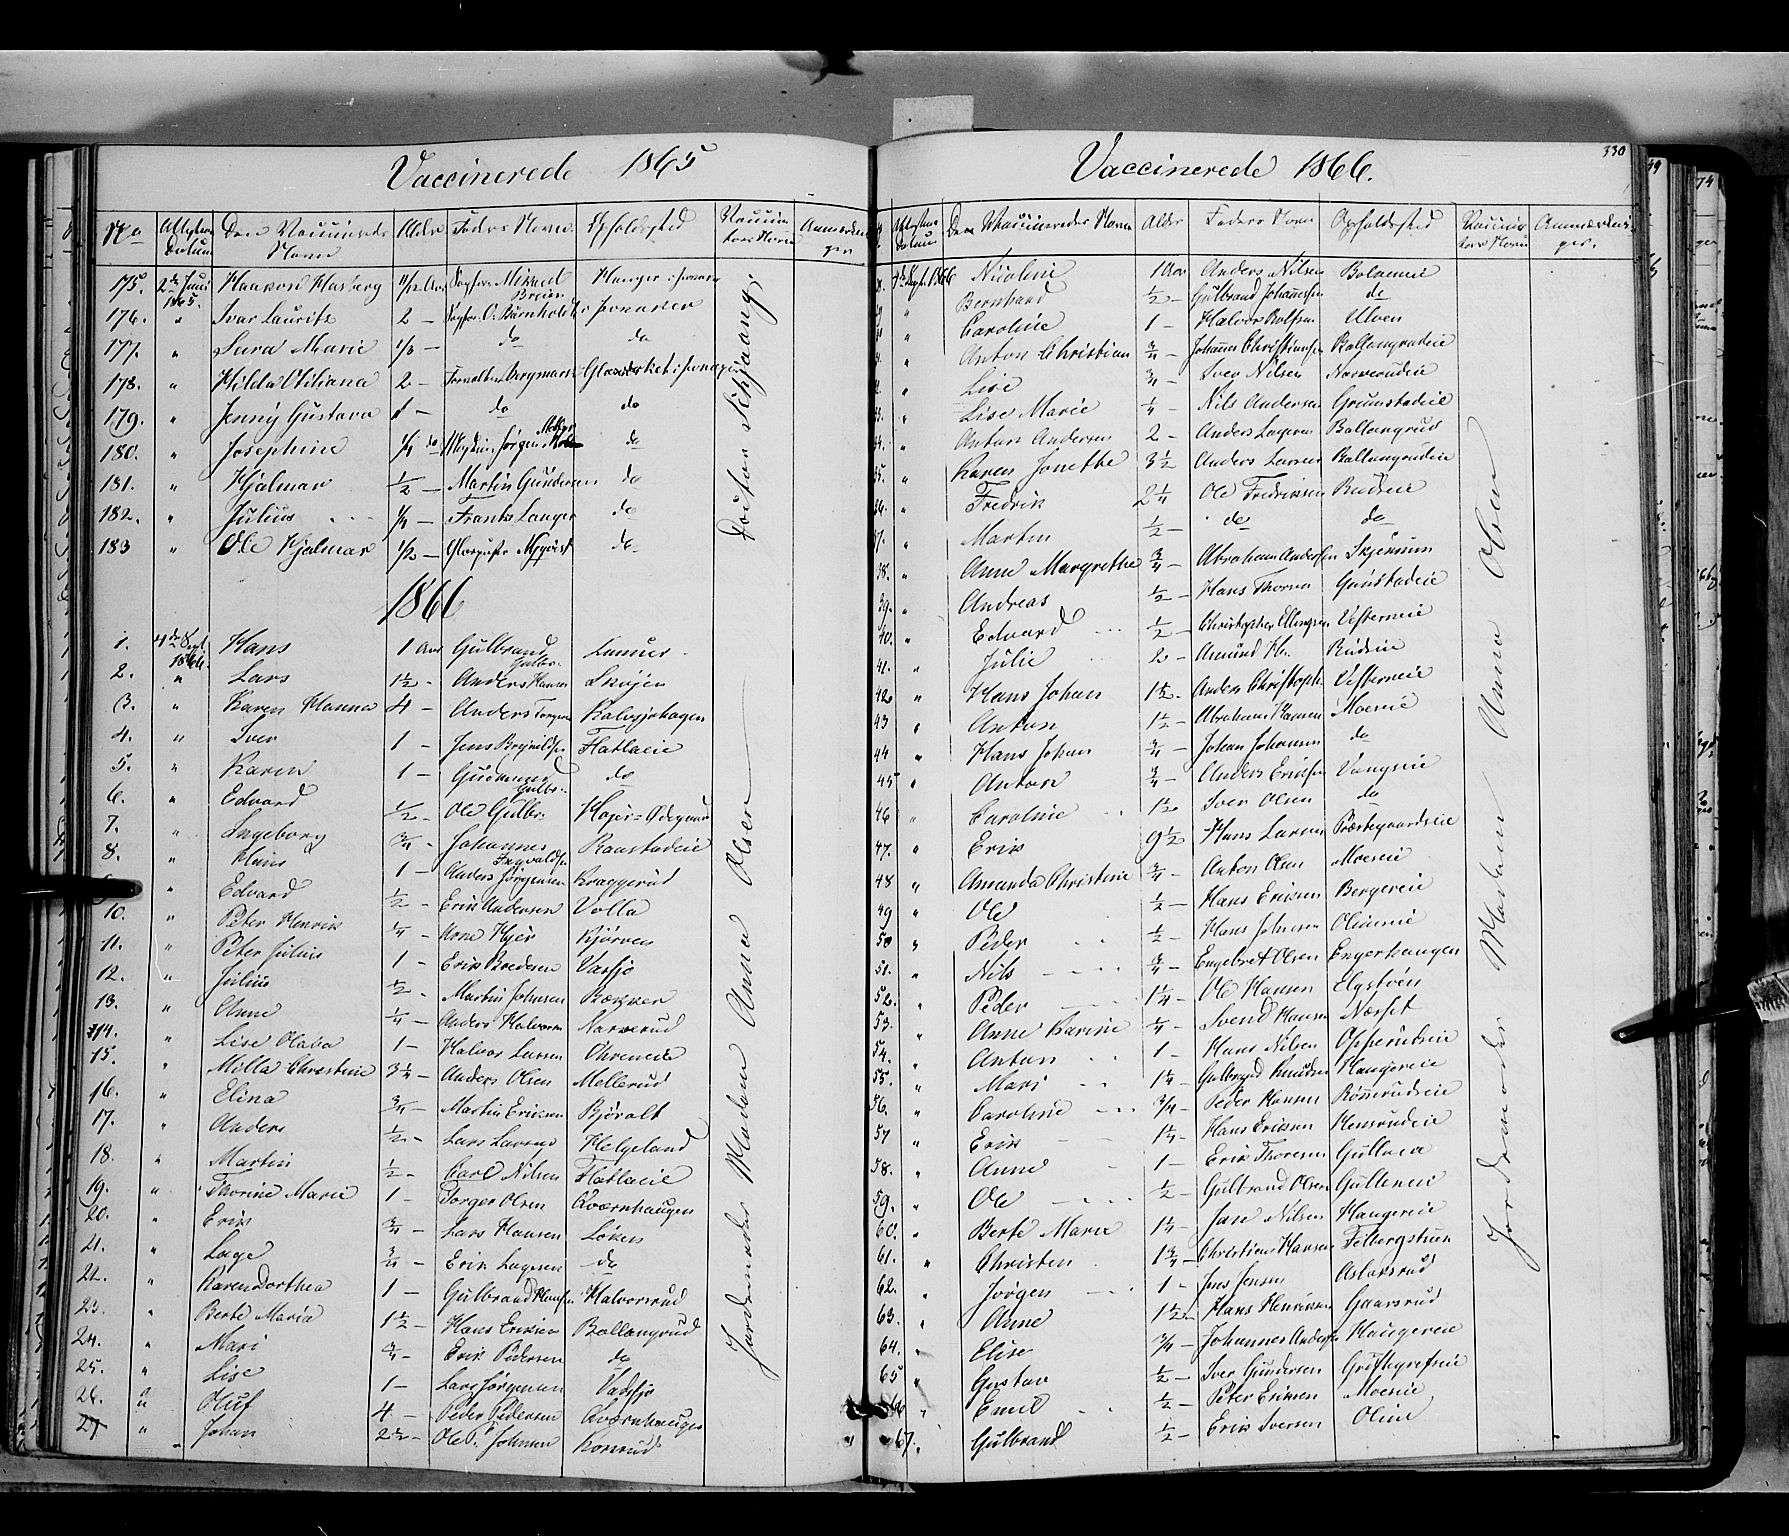 Vaccinerede 1865
No Attestens Datum Den Vaccineredes Navn Alder Faders Navn Opholdssted Vaccinators Navn Anmærkninger
175. 2de Juni 1865. Haakon Hasberg 11/12 Aar Mikael Hanger i
176. " Ivar Laurits 2 — O. Barnholdt
177. " Lura Marie 1/3 — do do
178. " Hilda Viliana 2 — Bergmann
179. " Jenny Gustava 1 — do do
180. " Josephine 1/4 do Jørgen do
181. " Hjalmar 1/2 — Martin Gundersen do
182. " Julius 1/4 — Frants Langer do
183 " Ole Hjalmar 1/2 — do
1866
1. 4de Sept. 1866. Hans 1 Aar Gulbrand Gulbr. Lunner
2. " Lars 1 1/2 - Anders Hansen Skøien
3. " Karen Hanna 4 - Anders Torgers Kalvsjøhagen
4. " Iver 1 - Jens Flatlaeie
5. " Karen 1 — Gudmund Gulbr. do
6. " Edvard 1/2 — Ole Gulbr. Høier-Ødegaard
7. " Ingeborg 3/4 - Johannes Ingvaldsen Raastadeie
8. " Hans 1 — Anders Jørgensen Kraggerud
" Edvard 1/2 — Erik Andersen Volla
10. " Peter Henrik 1/4 — Arne Hjer Kjørven
11. " Peter Julius 1 — Erik Bredesen Vassjo
12. " Julius 1/2 - Martin Johnsen Bækken
13. " Anne 1/4 — Anders Halvorsen Narverud
14. " Lise Olaba 1 - Halvor Larsen Ohreneie
15. " Milla Christine 3 1/4 — Anders Olsen Mellerud
16. " Elina 3/4 — Martin Eriksen Bjøralt
17. " Anders 1/2 - Lars Larsen Helgeland
18. " Martin 1/2 - Carl Nilsen Flatlaeie
19. " Thorine Marie 1 - Torger Olsen Qværnhaugen
20. " Erik 3/4 — Lars Hansen Løken
21. " Lage 3/4 - Erik Lagesen do
22. " Karen Dorthea 1 — Gulbrand Hansen Halvorsrud
23. " Berte Maria 1 1/2 - Hans Eriksen Ballangrud
24. " Mari 3/4 - Erik Pedersen do
25. " Lise 1 — Lars Jørgensen Vassjo
26. " Oluf 4 — Peder Pedersen Qværnhaugen
27 " Johan 2 1/2 - Ole P. Johnsen Konrud
Doctor Schjaang.
Jordemoder Madam Anna Olsen
330
Vaccinerede 1866.
Attestens Datum Den Vaccineredes Navn Alder Faders Navn Opholdssted Vaccinators Navn Anmærkninger.
4de Sept. 1866 Nicoline 1 Aar Anders Nilsen
" Bernhard 1/2 — Gulbrand Johannessen do
" Caroline 1 - Halvor Rolfsen Ulven
" Anton Christian 3/4 — Johannes Christiansen Ballangrudeie
" Lise 3/4 - Iver Nilsen Narverudeie
" Lise Marie 1/4 - Nils Andersen Grinstadeie
34. " Anton Andersen 2 - Anders Lagesen Ballangrud
35. " Karen Jonette 3 1/2 Anders Larsen Ballangrudeie
36. " Fredrik 2 1/4 Ole Fredriksen Rudseie
37. " Martin 1/2 — do do
38. " Anne Margrethe 3/4 — Abraham Andersen Skjerrum
39. " Andreas 1/2 — Hans Thoresen Grinstadeie
40. " Edvard 1/2 — Christopher Ellingsen Vesterneie
41. " Julie 2 - Amund Rudseie
42 " Hans Johan 1 1/2 - Anders Christoph. Vesterneie
43 " Anton 1 1/2 — Abraham Hansen Moeseie
44 " Hans Johan 3/4 — Johan Johannesen do
45 " Anton 3/4 — Anders Eriksen Vangseie
46 " Caroline 1 1/2 Iver Olsen do
47. " Erik 9 1/2 Hans Larsen Præstegaardseie
48 " Amanda Christine 3/4 - Anton Olsen Moeseie
49 " Ole 1/2 — Hans Eriksen Bergereie
50 " Peder 1/2 - Hans Johnsen Olimeie
51. " Nils 3/4 — Engebret Olsen Engerhaugen
52. " Peder 1 1/4 - Ole Hansen Elgstøen
53. " Anne Karine 1/4 - Svend Hansen Næsset
54. " Anton 1 - Hans Nilsen Opperudseie
55. " Mari 1 1/4 - Gulbrand Knudsen Haugereie
56. " Caroline 3/4 - Peder Hansen
57 " Erik 1 1/4 - Hans Eriksen
58. " Anne 1 — Erik Thoresen
59. " Ole 1/2 — Gulbrand Olsen Gulleneie
60. " Berte Marie 1 1/4 - Nilsen Haugereie
61. " Christen 1 3/4 — Christian Hansen
62. " Jørgen 1 - Jens Jensen Aslaksrud
63. " Anne 1 1/2 - Hans Henriksen Gaarsrud
64. " Elise 3/4 — Johannes Anders. Haugereie
65 " Gustav 1/2 — Iver Gundersen
66 " Emil 1/2 — Peter Eriksen Moeseie
67. " Gulbrand 1/2 — Erik Iversen
Jordemoder Madam Anna Olsen